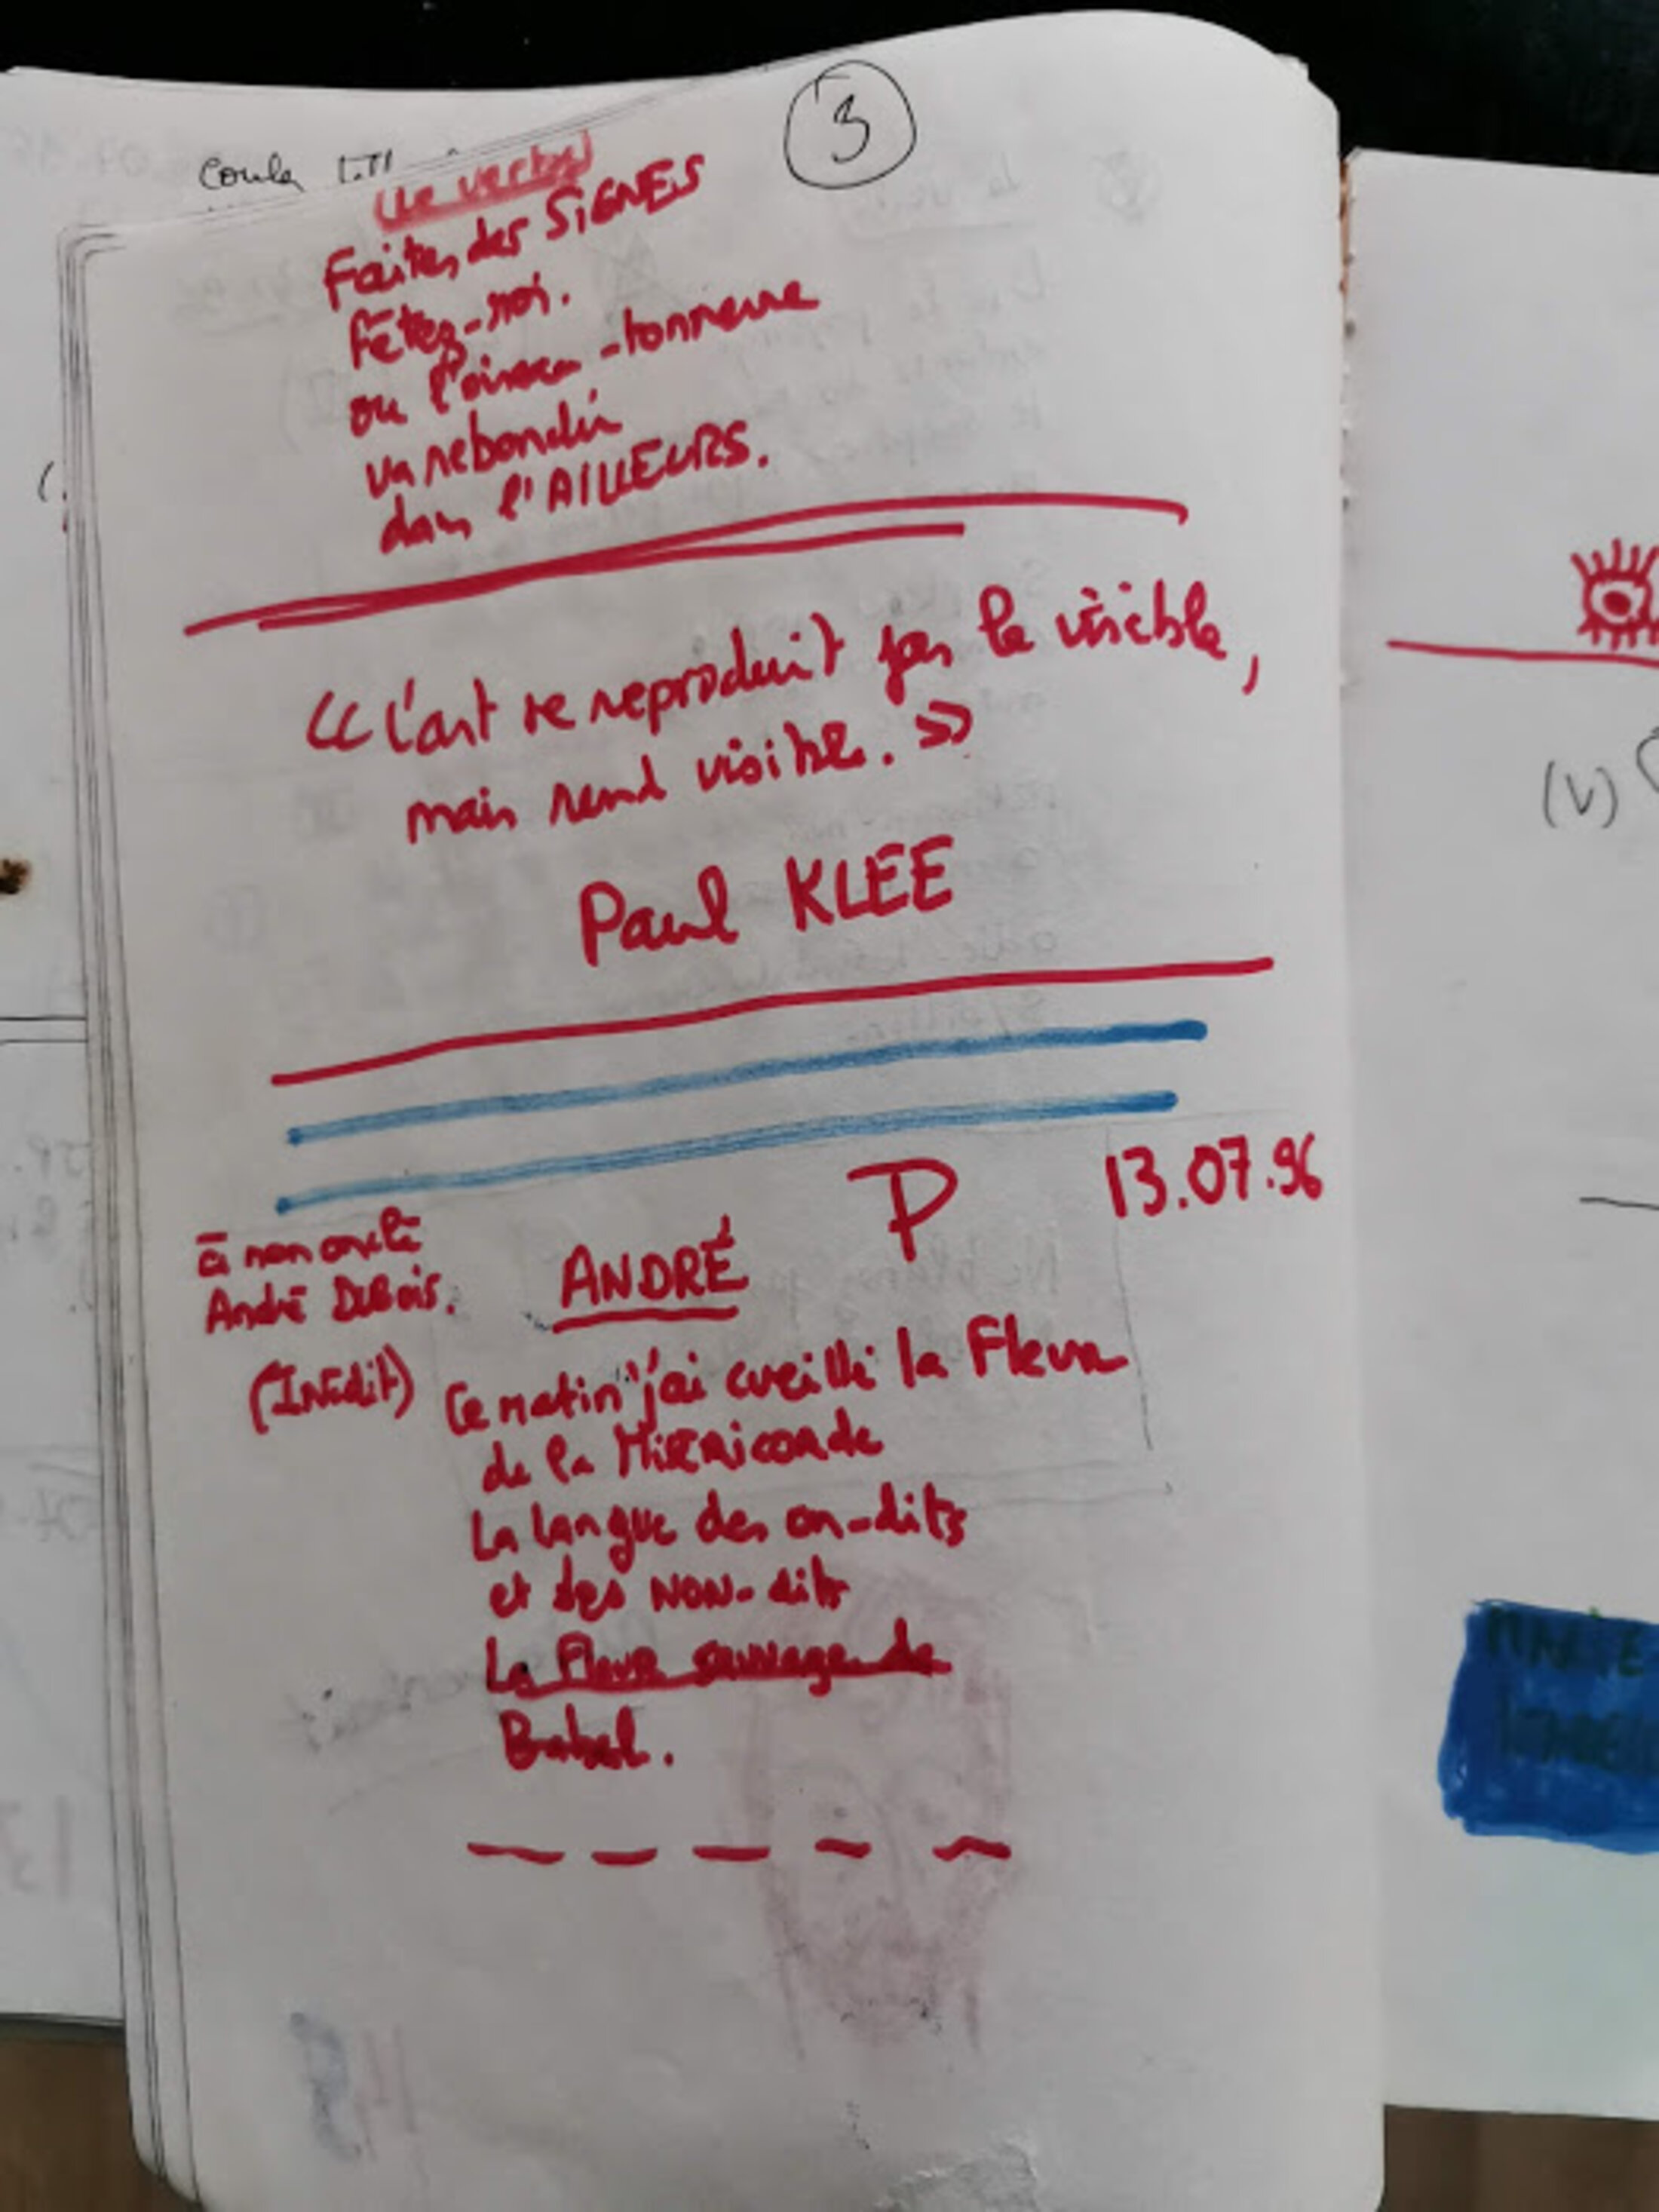 3
(Le verbe)
Faites des SIGNES
Fêtez-moi.
ou l'oiseau-tonnerre
va rebondir
dans l'AILLEURS.
« L'art ne reproduit pas le visible,
mais rend visible. »
Paul KLEE
P 13.07.96
à mon oncle
André Dubois.
ANDRÉ
(Inédit)
Ce matin j'ai cueilli la Fleur
de la Miséricorde
La langue des on-dits
et des NON-dits
La Fleur sauvage de
Babel.
(V)